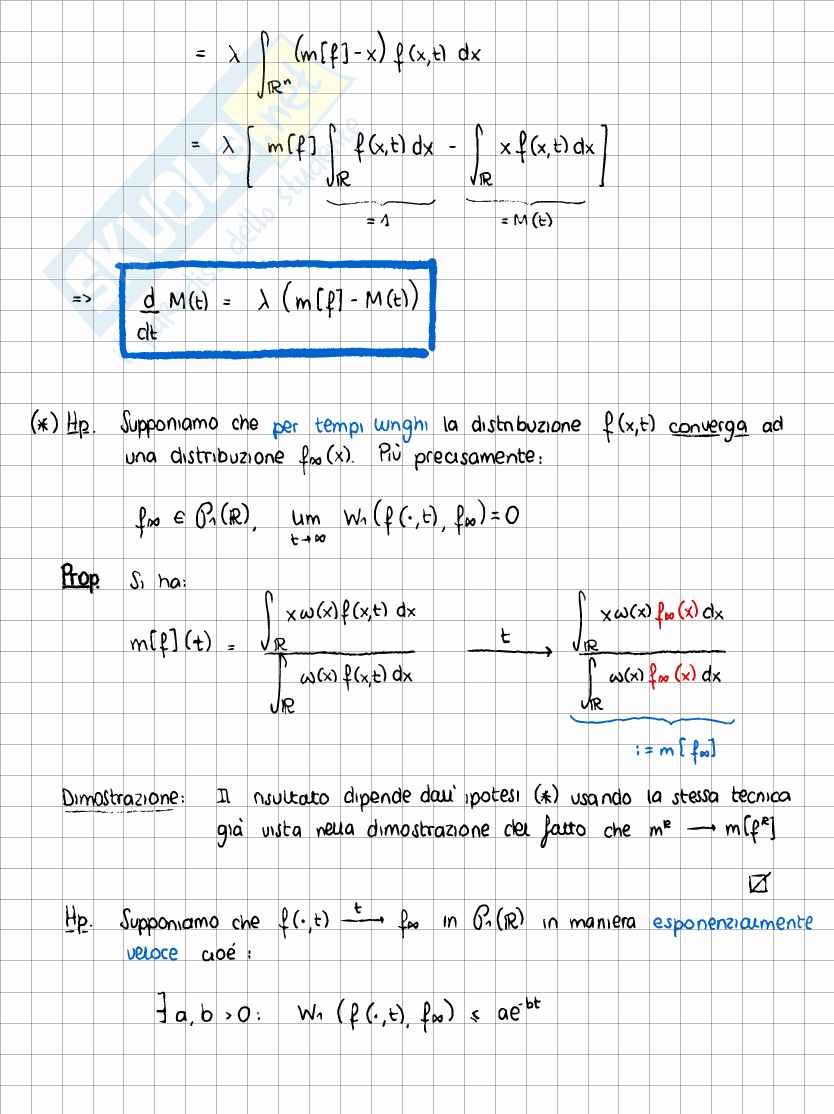 = λ ∫_{ℝⁿ} (m[f] - x) f(x,t) dx
= λ [ m[f] ∫_ℝ f(x,t) dx - ∫_ℝ x f(x,t) dx ]
= 1 = M(t)
=> d/dt M(t) = λ (m[f] - M(t))
(*) Hp. Supponiamo che per tempi lunghi la distribuzione f(x,t) converga ad
una distribuzione f∞(x). Più precisamente:
f∞ ∈ 𝒫₁(ℝ), lim_{t→∞} W₁(f(·,t), f∞) = 0
Prop Si ha:
m[f](t) = ∫_ℝ x ω(x) f(x,t) dx / ∫_ℝ ω(x) f(x,t) dx —t→ ∫_ℝ x ω(x) f∞(x) dx / ∫_ℝ ω(x) f∞(x) dx
:= m[f∞]
Dimostrazione: Il risultato dipende dall' ipotesi (*) usando la stessa tecnica
già vista nella dimostrazione del fatto che mᴿ → m[fᴿ]
Hp. Supponiamo che f(·,t) —t→ f∞ in 𝒫₁(ℝ) in maniera esponenzialmente
veloce cioé :
∃ a, b > 0 : W₁ (f(·,t), f∞) ≤ ae^{-bt}
SKUOLA.net
dello studente